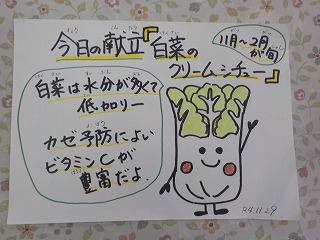 今日の献立『白菜の
クリームシチュー』
11月～2月
が旬
白菜は水分が多くて
低カロリー
カゼ予防によい
ビタミンCが
豊富だよ.
R4.11.29